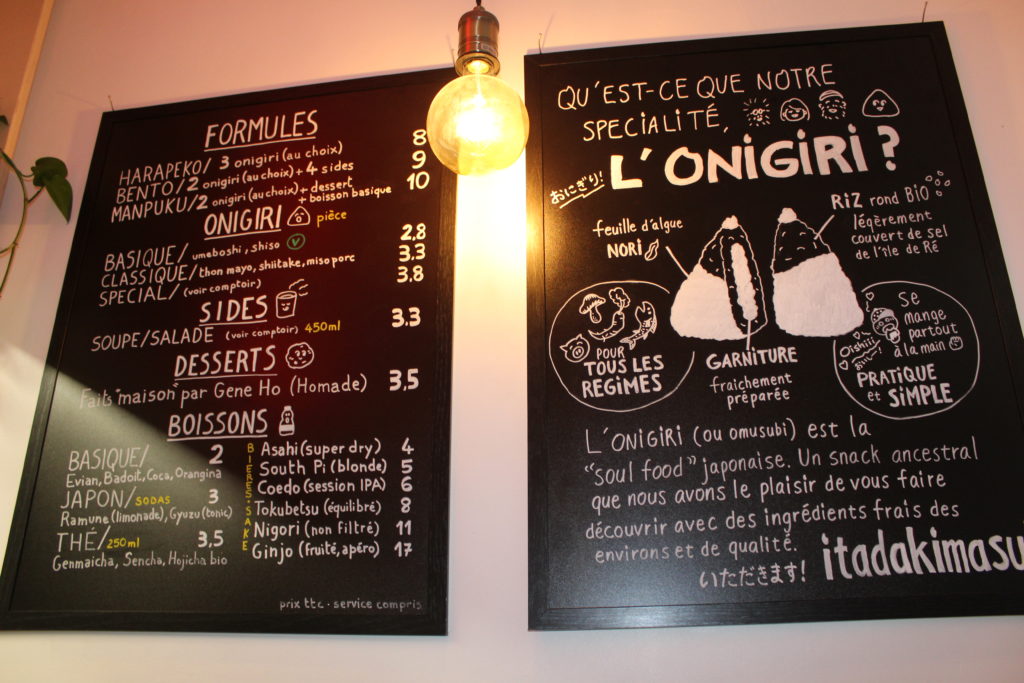 FORMULES
HARAPEKO/ 3 onigiri (au choix) 8
BENTO/ 2 onigiri (au choix) + 4 sides 9
MANPUKU/ 2 onigiri (au choix) + dessert + boisson basique 10
ONIGIRI pièce
BASIQUE/ umeboshi, shiso V 2.8
CLASSIQUE/ thon mayo, shiitake, miso porc 3.3
SPECIAL/ (voir comptoir) 3.8
SIDES
SOUPE/SALADE (voir comptoir) 450ml 3.3
DESSERTS
Faits "maison" par Gene Ho (Homade) 3,5
BOISSONS
BASIQUE/ 2
Evian, Badoit, Coca, Orangina
JAPON/ SODAS 3
Ramune (limonade), Gyuzu (tonic)
THÉ/ 250ml 3,5
Genmaicha, Sencha, Hojicha bio
BIERES • SAKE
Asahi (super dry) 4
South Pi (blonde) 5
Coedo (session IPA) 6
Tokubetsu (équilibré) 8
Nigori (non filtré) 11
Ginjo (fruité, apéro) 17
prix ttc • service compris
QU'EST-CE QUE NOTRE
SPECIALITÉ,
おにぎり! L'ONIGIRI ?
feuille d'algue
NORI
RIZ rond BIO
légèrement
couvert de sel
de l'île de Ré
POUR
TOUS LES
REGIMES
GARNITURE
fraichement
préparée
Se
mange
partout
à la main
Oishiii
PRATIQUE
et SIMPLE
L'ONIGIRI (ou omusubi) est la
"soul food" japonaise. Un snack ancestral
que nous avons le plaisir de vous faire
découvrir avec des ingrédients frais des
environs et de qualité.
いただきます! itadakimasu